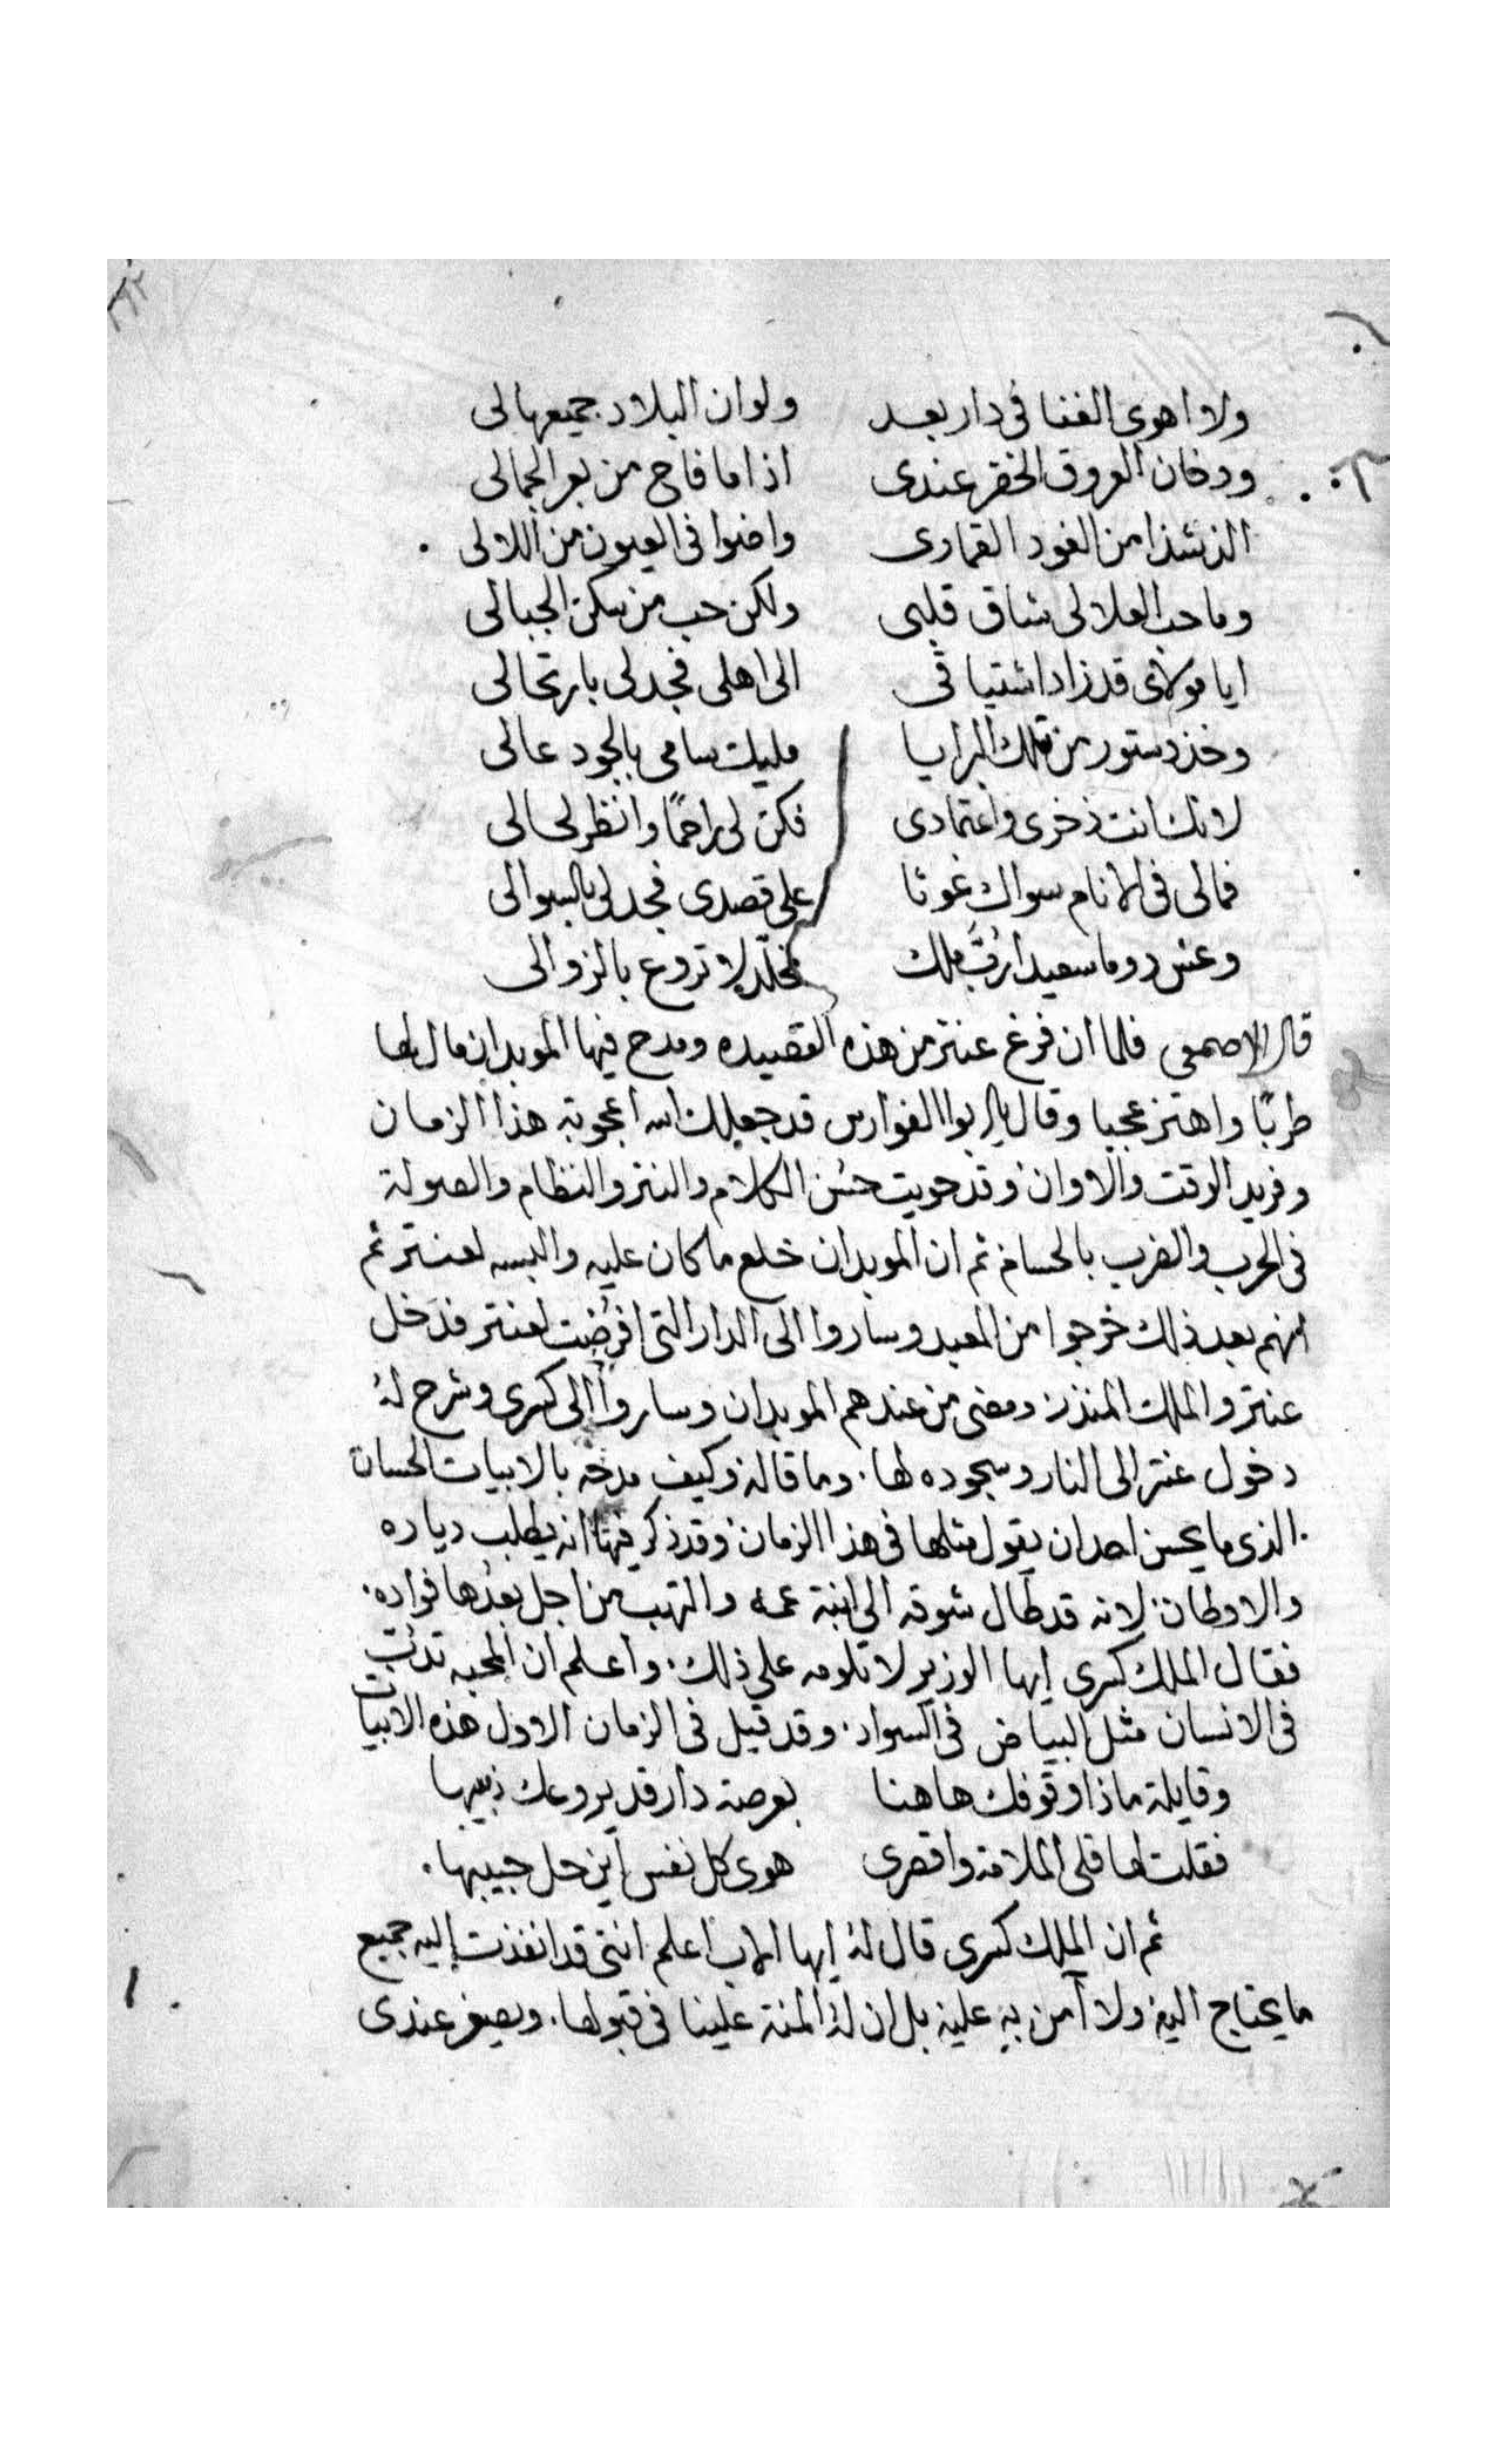 ولا اهوى الغنا فى دار بعد ولو ان البلاد جميعها لى
ودخان العروق الخضر عندى اذا ما فاح من بعر الجمالى
الذ شذا من العود القمارى واضوا فى العيون من اللالى
وما حب العلا لى شاق قلبى ولكن حب من سكن الجبالى
ايا مولاى قد زاد اشتياقى الى اهلى فجد لى بارتحالى
وخذ دستور من تلك البرايا مليك سامى بالجود عالى
لانك انت ذخرى واعتمادى فكن لى راحمًا وانظر لحالى
فمالى فى الانام سواك غوثا على قصدى فجد لى بالسوالى
وعش دوما سعيدا ربّ ملك مخلّد لا تروع بالزوالى
قال الاصمعى فلما ان فرغ عنتر من هذه القصيده ومدح فيها الموبدان مال لها
طربًا واهتز عجبا وقال يا ابوا الفوارس قد جعلك الله اعجوبة هذا الزمان
وفريد الوقت والاوان وقد حويت حسن الكلام والنثر والنظام والصولة
فى الحرب والضرب بالحسام ثم ان الموبدان خلع ما كان عليه والبسه لعنتر ثم
انهم بعد ذلك خرجوا من المعبد وساروا الى الدار التى افرضت لعنتر فدخل
عنتر والملك المنذر ومضى من عندهم الموبدان وساروا الى كسرى وشرح لهُ
دخول عنتر الى النار وسجوده لها وما قاله وكيف مدحه بالابيات الحسان
الذى ما يحسن احد ان يقول مثلها فى هذا الزمان وقد ذكر فيها انه يطلب دياره
والاوطان لانه قد طال شوقه الى ابنة عمه والتهب من اجل بعدها فواده
فقال الملك كسرى ايها الوزير لا تلومه على ذلك واعلم ان المحبه تدبّ
فى الانسان مثل البياض فى السواد وقد قيل فى الزمان الاول هذه الابيات
وقايلة ماذا وقوفك هاهنا بعرصة دار قد يروعك ذيبها
فقلت لها قلى الملامة واقصرى هوى كل نفس اين حل حبيبها
ثم ان الملك كسرى قال لهُ ايها الاب اعلم اننى قد انفذت اليه جميع
ما يحتاج اليه ولا آمن به عليه بل ان له المنة علينا فى قبولها ويصغر عندى